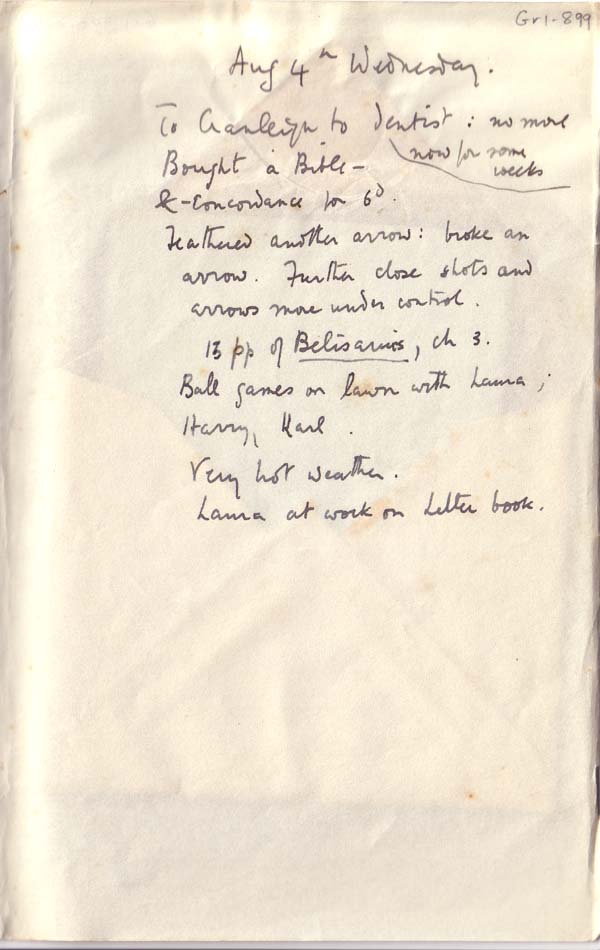 Gr1-899
Aug 4th Wednesday.
To Cranleigh to dentist: no more
now for some
weeks
Bought a Bible-
&-Concordance for 6d.
Feathered another arrow: broke an
arrow. Further close shots and
arrows more under control.
13 pp of Belisarius, ch 3.
Ball games on lawn with Laura,
Harry, Karl.
Very hot weather.
Laura at work on Letter book.